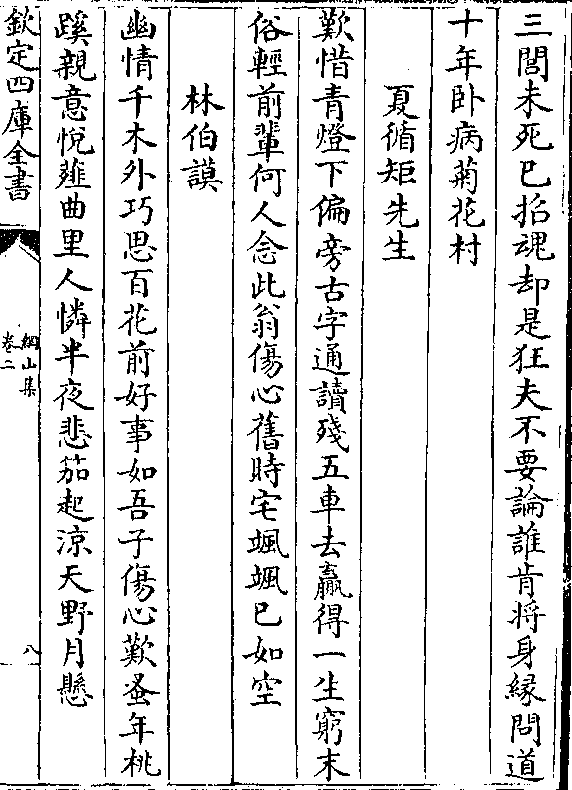 三閭未死已招魂却是狂夫不要論誰肯将身縁問道
十年卧病菊花村
夏循矩先生
歎惜青燈下偏旁古字通讀殘五車去贏得一生窮末
俗輕前輩何人念此翁傷心舊時宅颯颯已如空
林伯謨
幽情千木外巧思百花前好事如吾子傷心歎蚤年桃
蹊親意悅薤曲里人憐半夜悲笳起涼天野月懸
欽定四庫全書
網山集
卷二
八